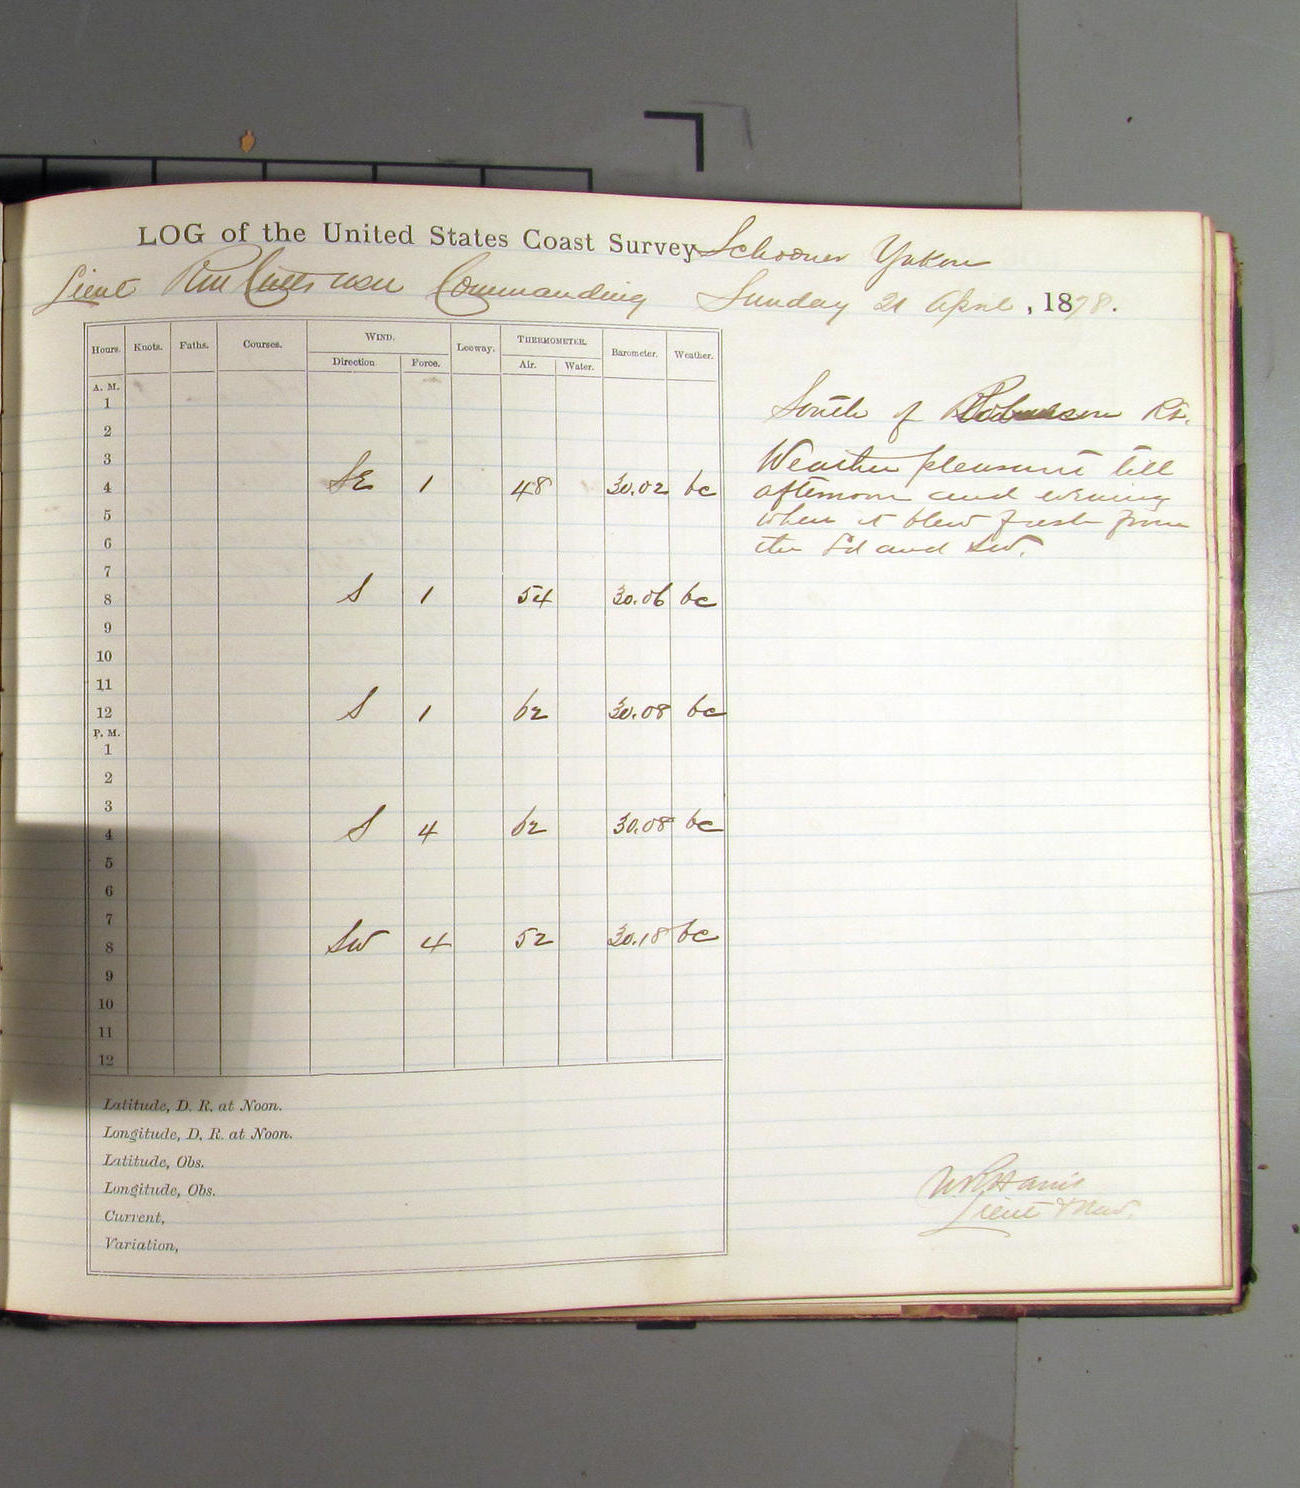 LOG of the United States Coast Survey Schooner Yukon
Lieut Commanding Sunday 21 April, 1878.
Hours. Knots. Faths. Courses. WIND. Leeway. THERMOMETER. Barometer. Weather.
Direction Force. Air. Water.
A. M.
1
2
3
4 SE 1 48 30.02 bc
5
6
7
8 S 1 54 30.06 bc
9
10
11
12 S 1 62 30.08 bc
P. M.
1
2
3
4 S 4 62 30.08 bc
5
6
7
8 SW 4 52 30.18 bc
9
10
11
12
Latitude, D. R. at Noon.
Longitude, D. R. at Noon.
Latitude, Obs.
Longitude, Obs.
Current,
Variation,
South of
Weather pleasant till
afternoon and evening
when it blew fresh from
the S'd and SW.
Harris
Lieut